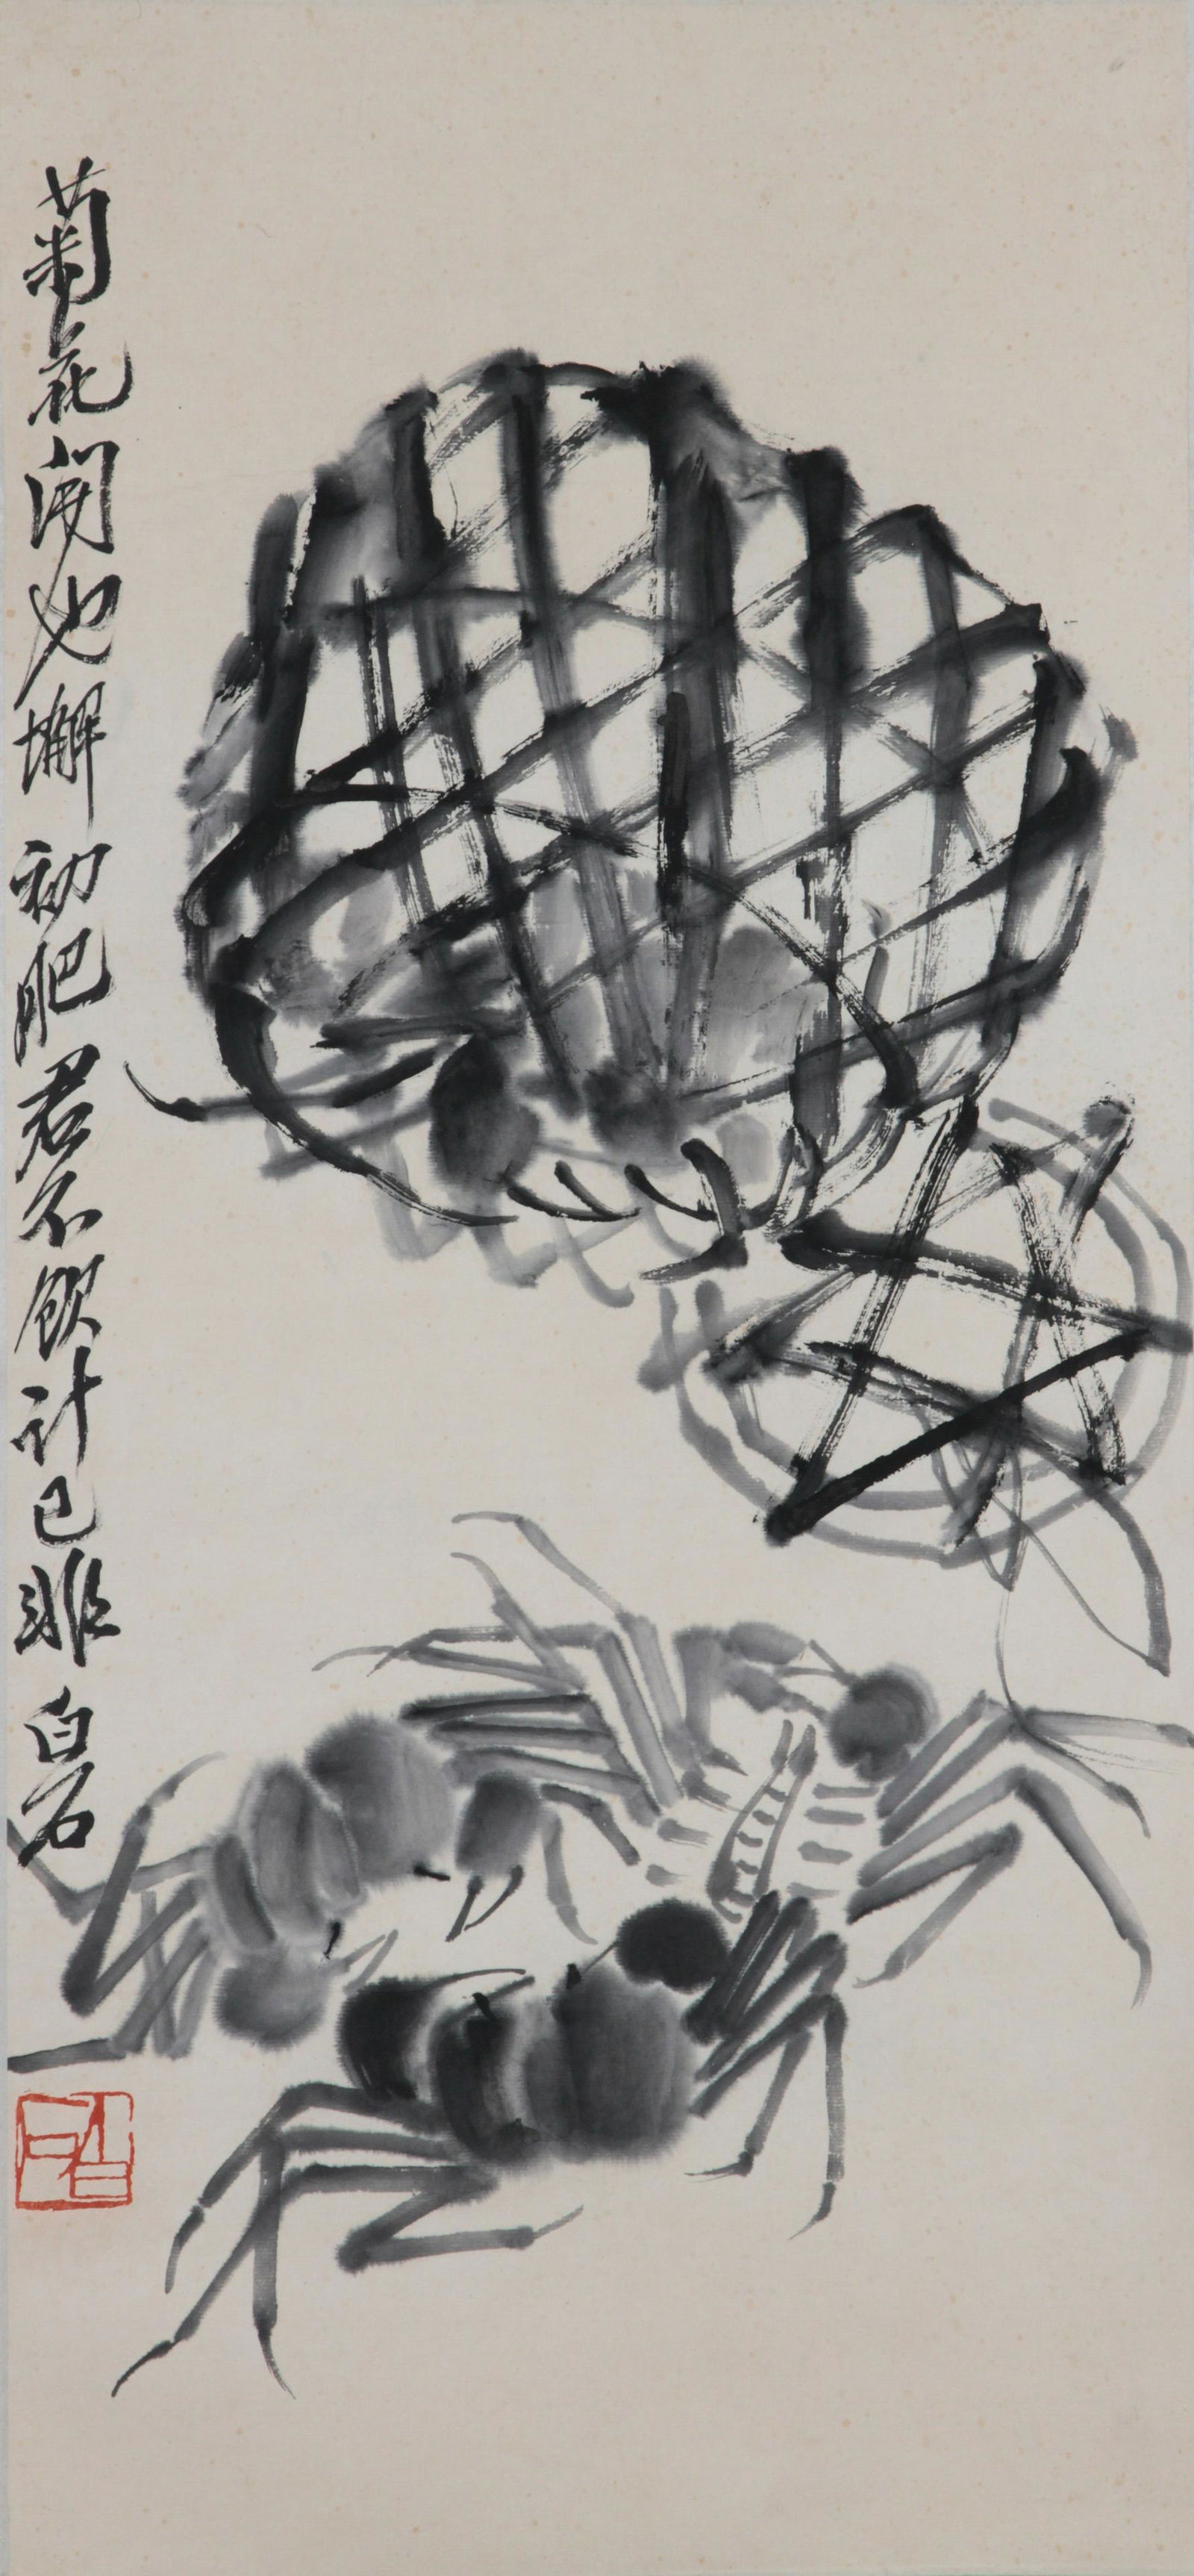 菊花開也蠏初肥君不飲計已非白石
白石